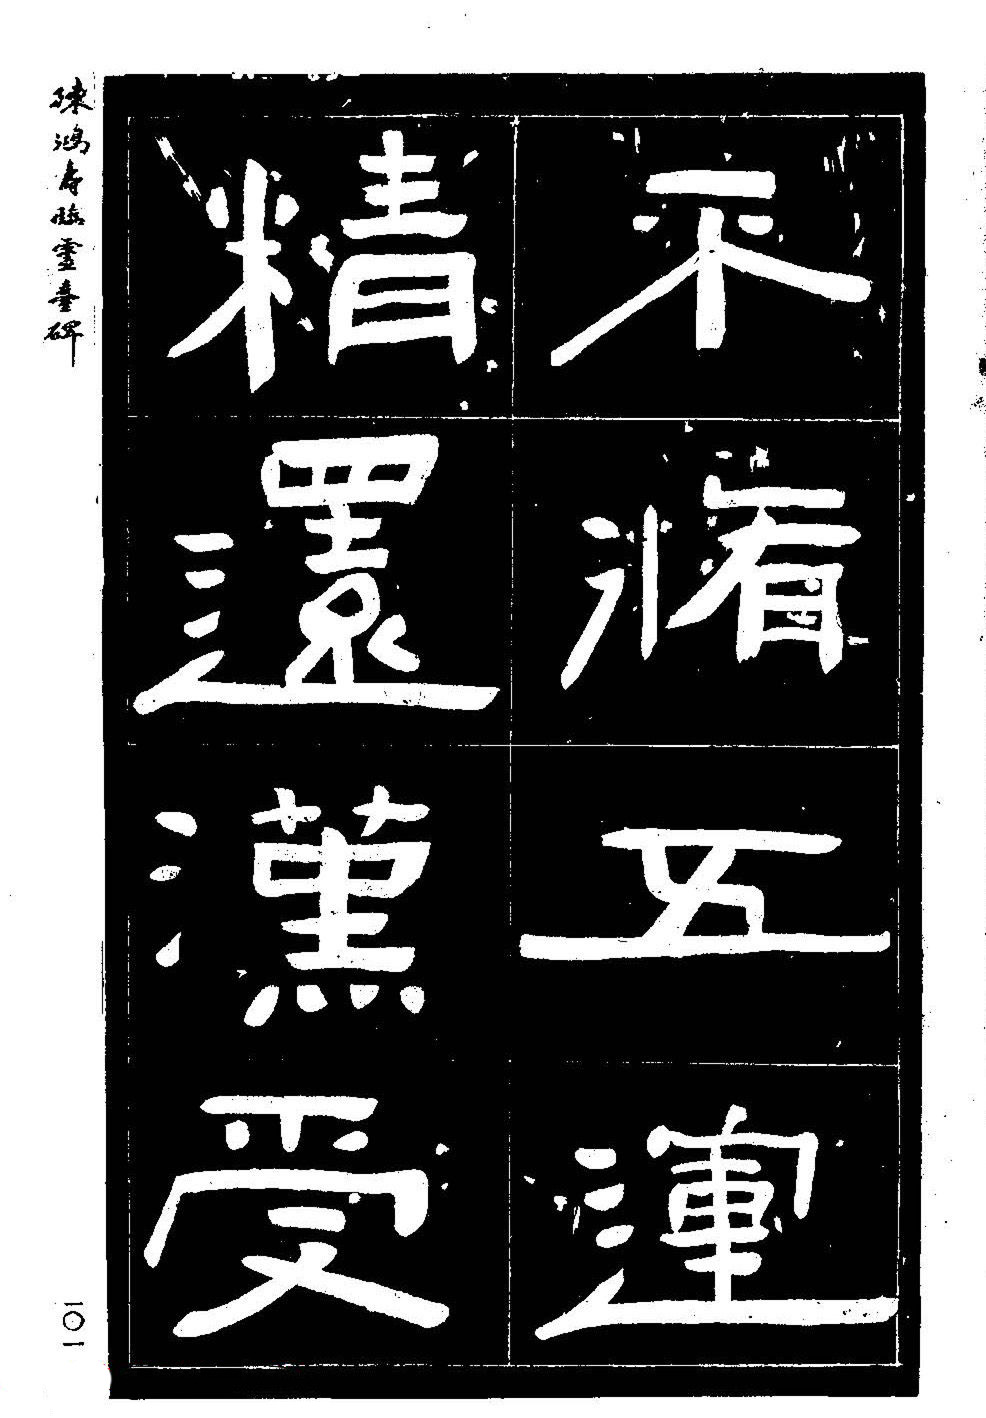 不脩五運
精還漢受
陳鴻壽臨靈臺碑
一〇一